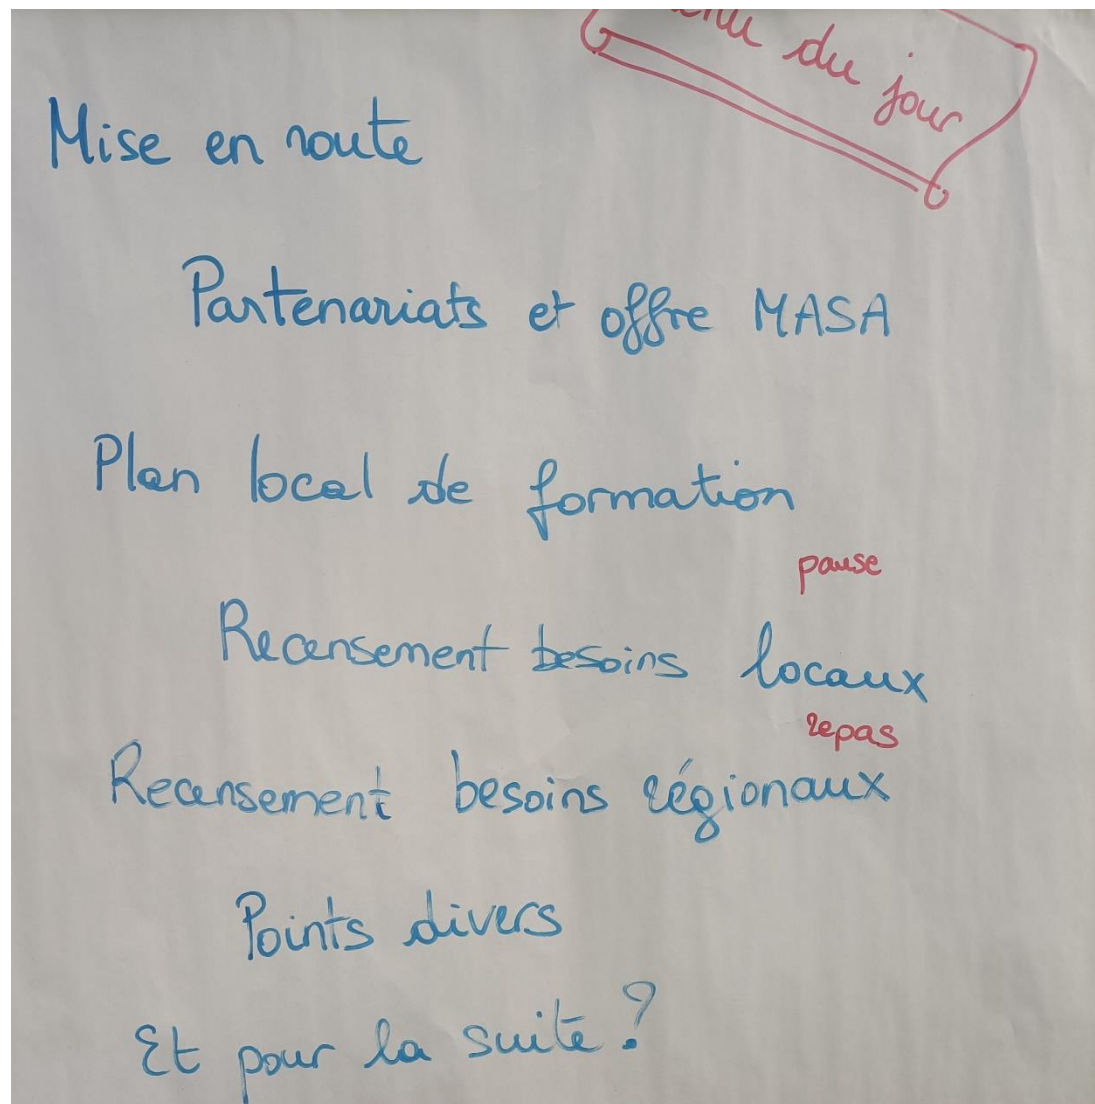 du jour
Mise en route
Partenariats et offre MASA
Plan local de formation
pause
Recensement besoins locaux
repas
Recensement besoins régionaux
Points divers
Et pour la suite ?